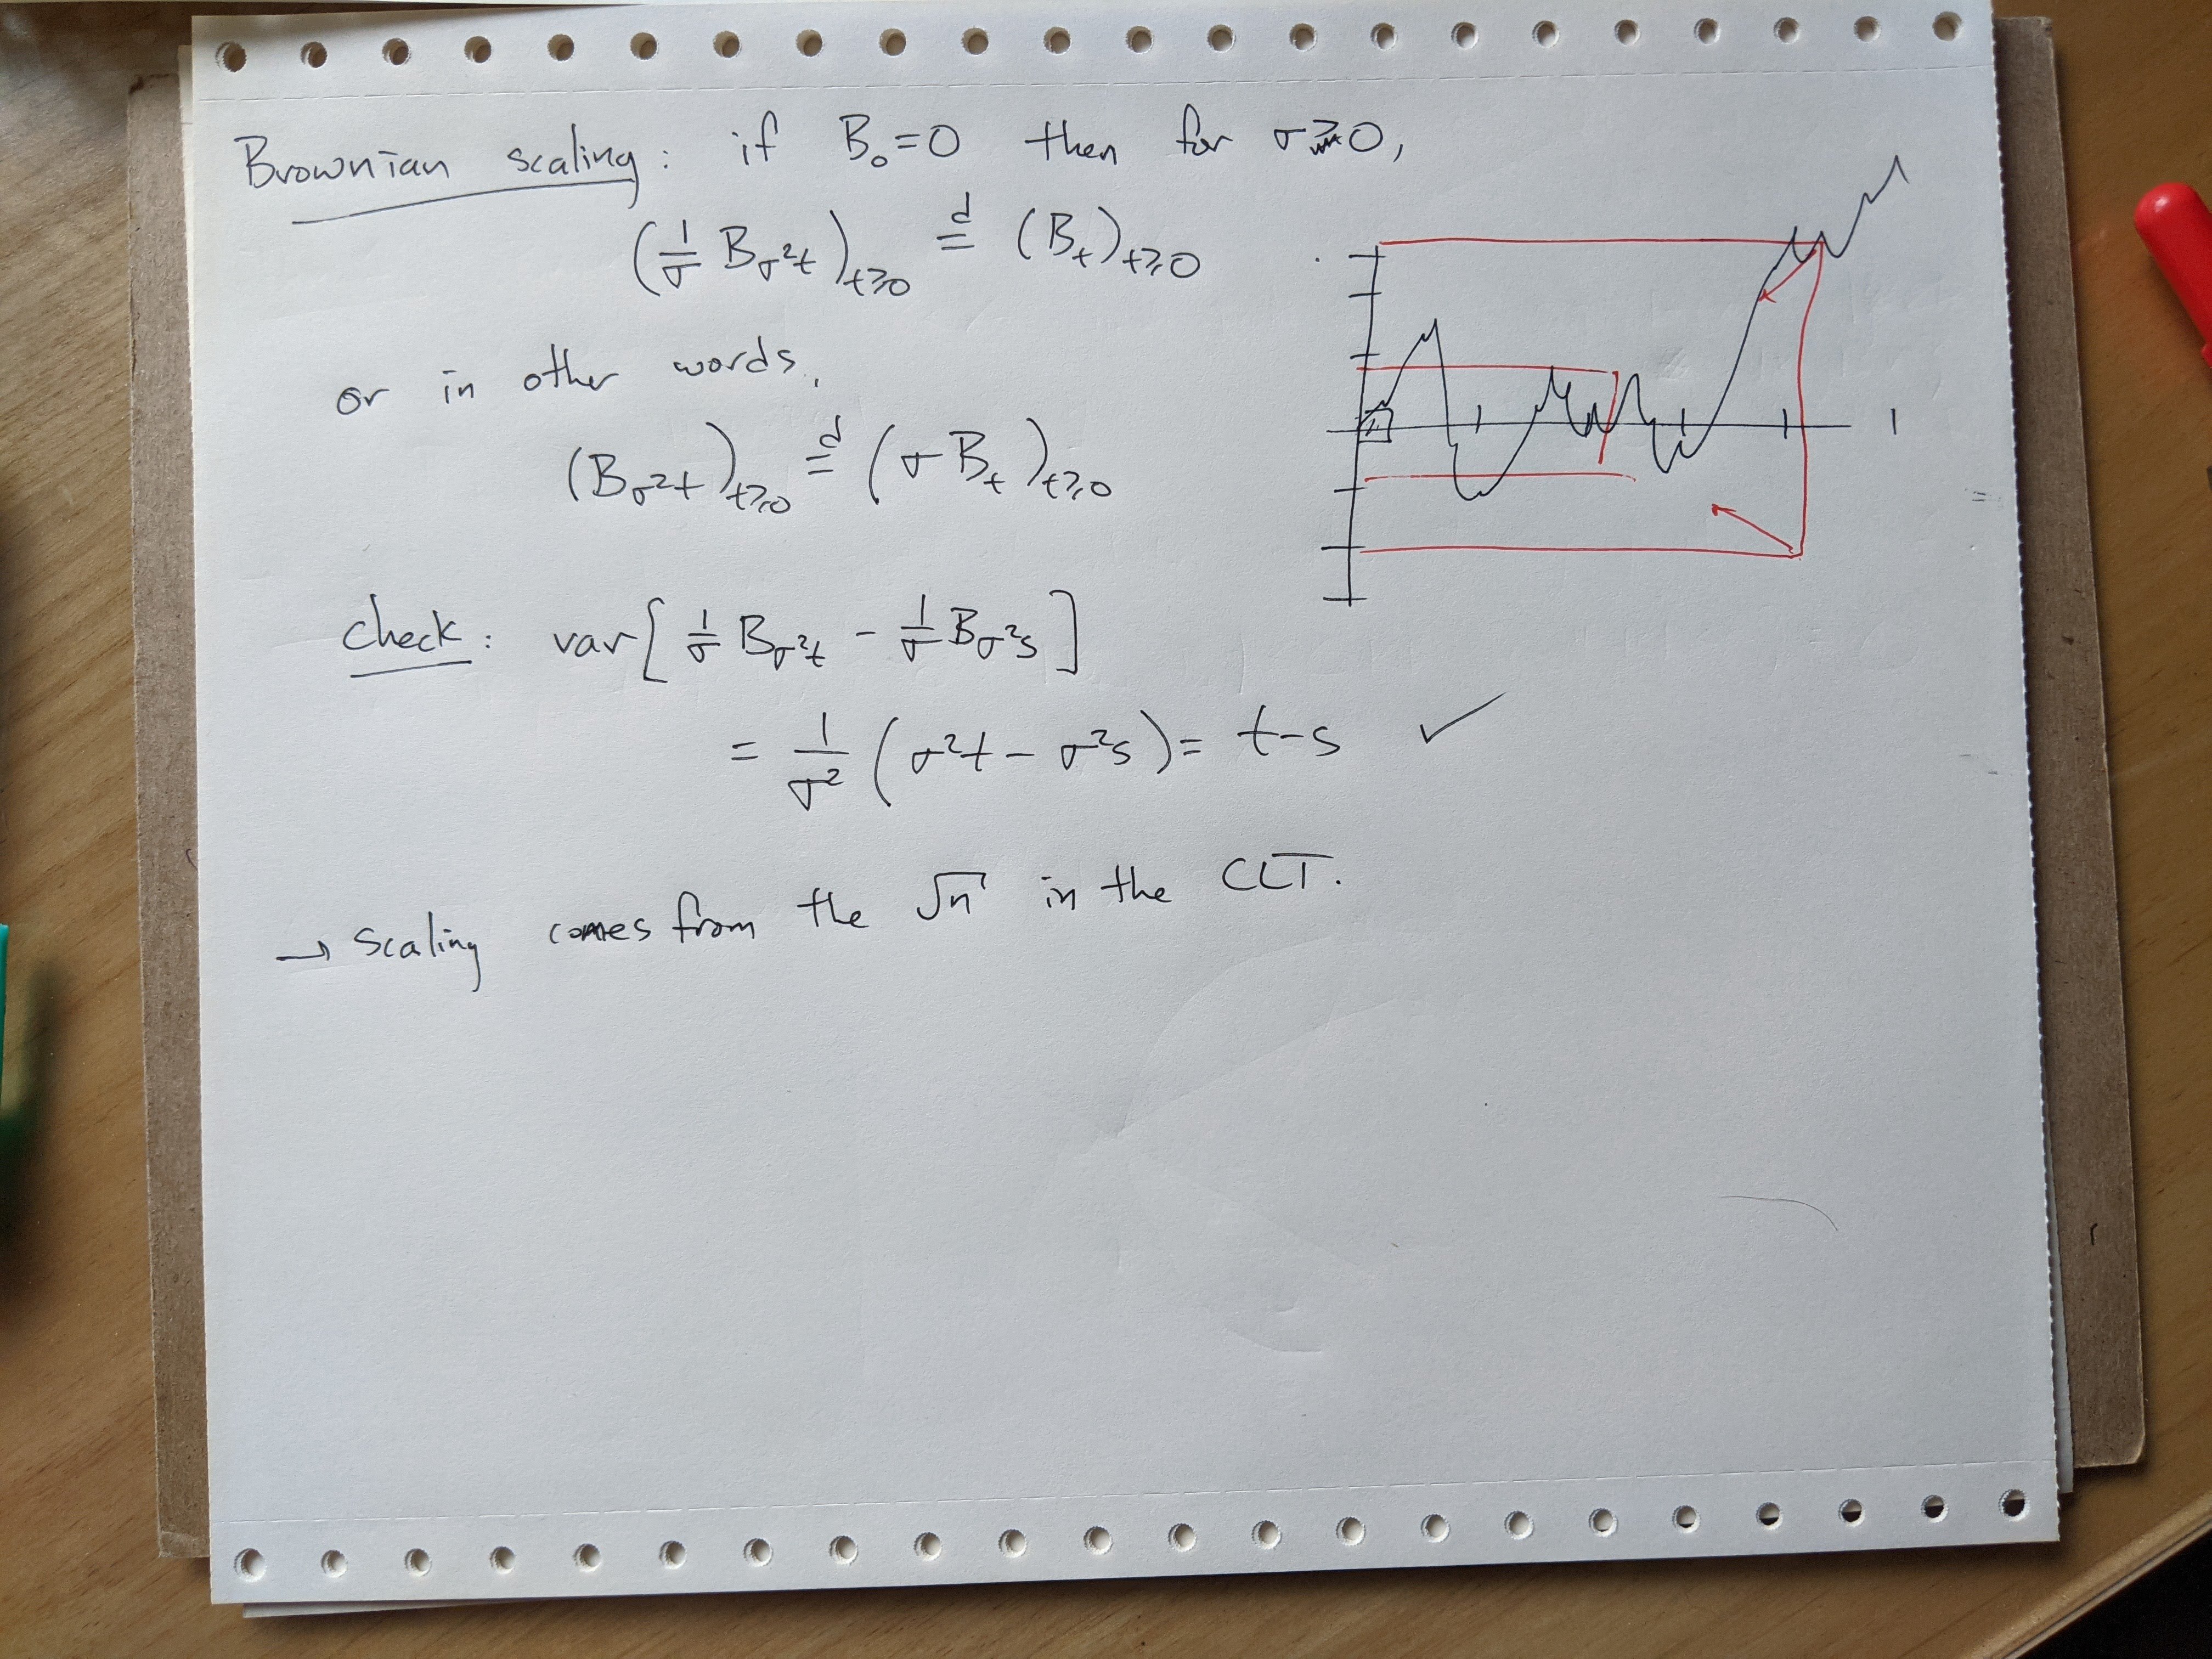 Brownian scaling: if B₀=0 then for σ>0,
(1/σ B_{σ²t})_{t≥0} =ᵈ (B_t)_{t≥0}
or in other words,
(B_{σ²t})_{t≥0} =ᵈ (σ B_t)_{t≥0}
check: var[1/σ B_{σ²t} - 1/σ B_{σ²s}]
= 1/σ² (σ²t - σ²s) = t-s ✓
→ scaling comes from the √n in the CLT.